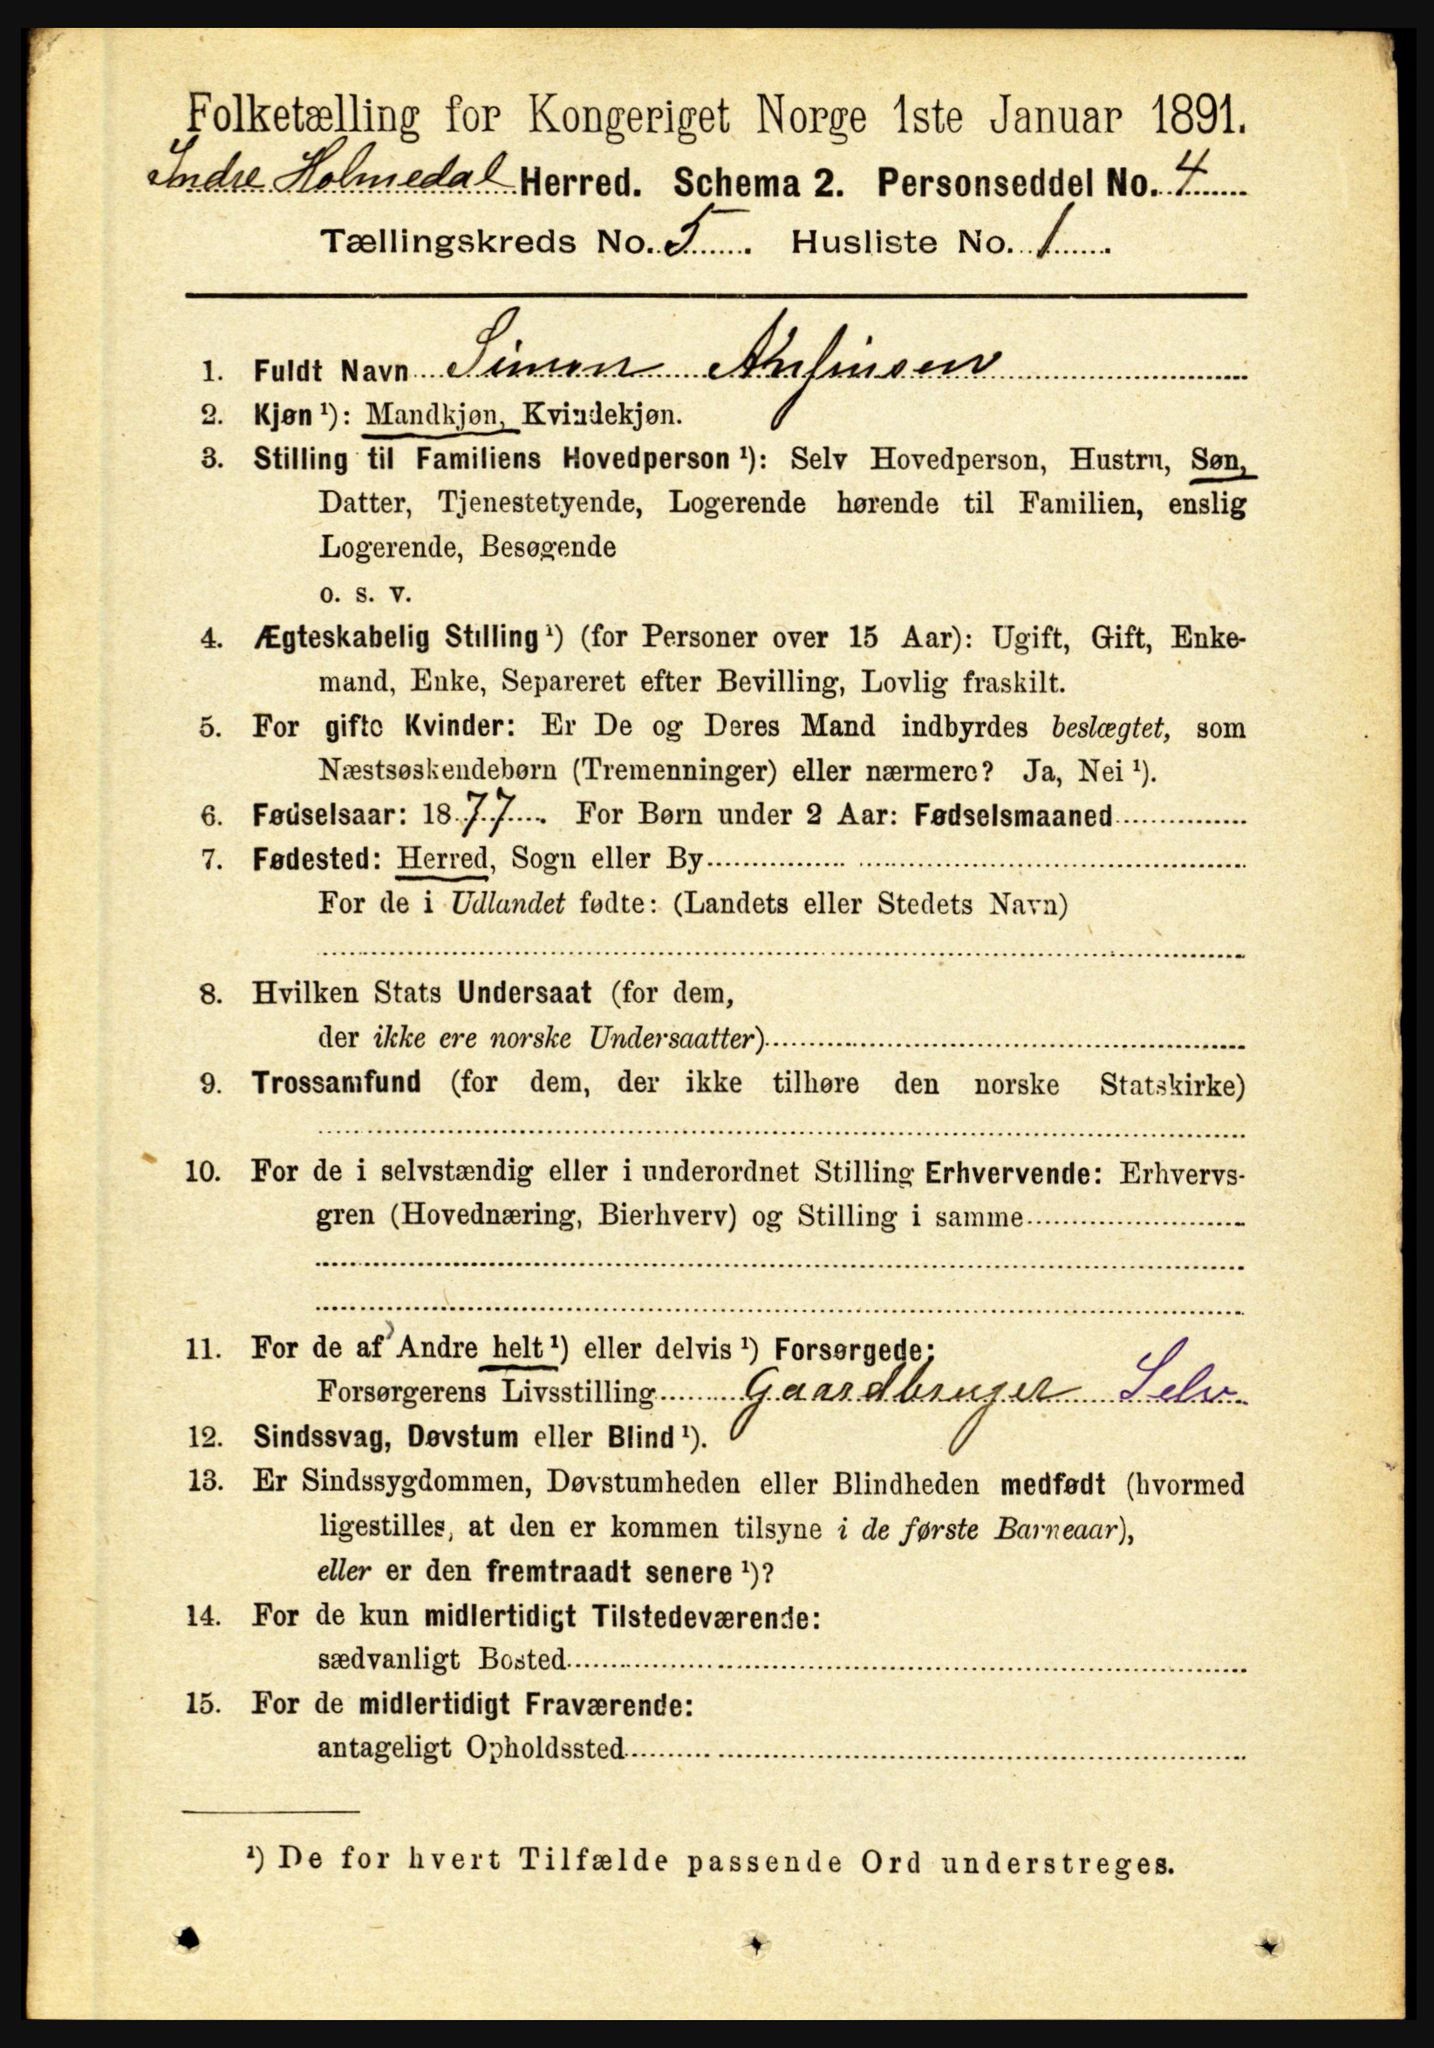 Folketælling for Kongeriget Norge 1ste Januar 1891.
Indre Holmedal Herred. Schema 2. Personseddel No. 4
Tællingskreds No. 5. Husliste No. 1.
1. Fuldt Navn Simon Anfinsen
2. Kjøn ¹): Mandkjøn, Kvindekjøn.
3. Stilling til Familiens Hovedperson ¹): Selv Hovedperson, Hustru, Søn,
Datter, Tjenestetyende, Logerende hørende til Familien, enslig
Logerende, Besøgende
o. s. v.
4. Ægteskabelig Stilling ¹) (for Personer over 15 Aar): Ugift, Gift, Enke-
mand, Enke, Separeret efter Bevilling, Lovlig fraskilt.
5. For gifte Kvinder: Er De og Deres Mand indbyrdes beslægtet, som
Næstsøskendebørn (Tremenninger) eller nærmere? Ja, Nei ¹).
6. Fødselsaar: 1877. For Børn under 2 Aar: Fødselsmaaned
7. Fødested: Herred, Sogn eller By
For de i Udlandet fødte: (Landets eller Stedets Navn)
8. Hvilken Stats Undersaat (for dem,
der ikke ere norske Undersaatter)
9. Trossamfund (for dem, der ikke tilhøre den norske Statskirke)
10. For de i selvstændig eller i underordnet Stilling Erhvervende: Erhvervs-
gren (Hovednæring, Bierhverv) og Stilling i samme
11. For de af Andre helt ¹) eller delvis ¹) Forsørgede:
Forsørgerens Livsstilling Gaardbruger Selv
12. Sindssvag, Døvstum eller Blind ¹).
13. Er Sindssygdommen, Døvstumheden eller Blindheden medfødt (hvormed
ligestilles, at den er kommen tilsyne i de første Barneaar),
eller er den fremtraadt senere ¹)?
14. For de kun midlertidigt Tilstedeværende:
sædvanligt Bosted
15. For de midlertidigt Fraværende:
antageligt Opholdssted
¹) De for hvert Tilfælde passende Ord understreges.